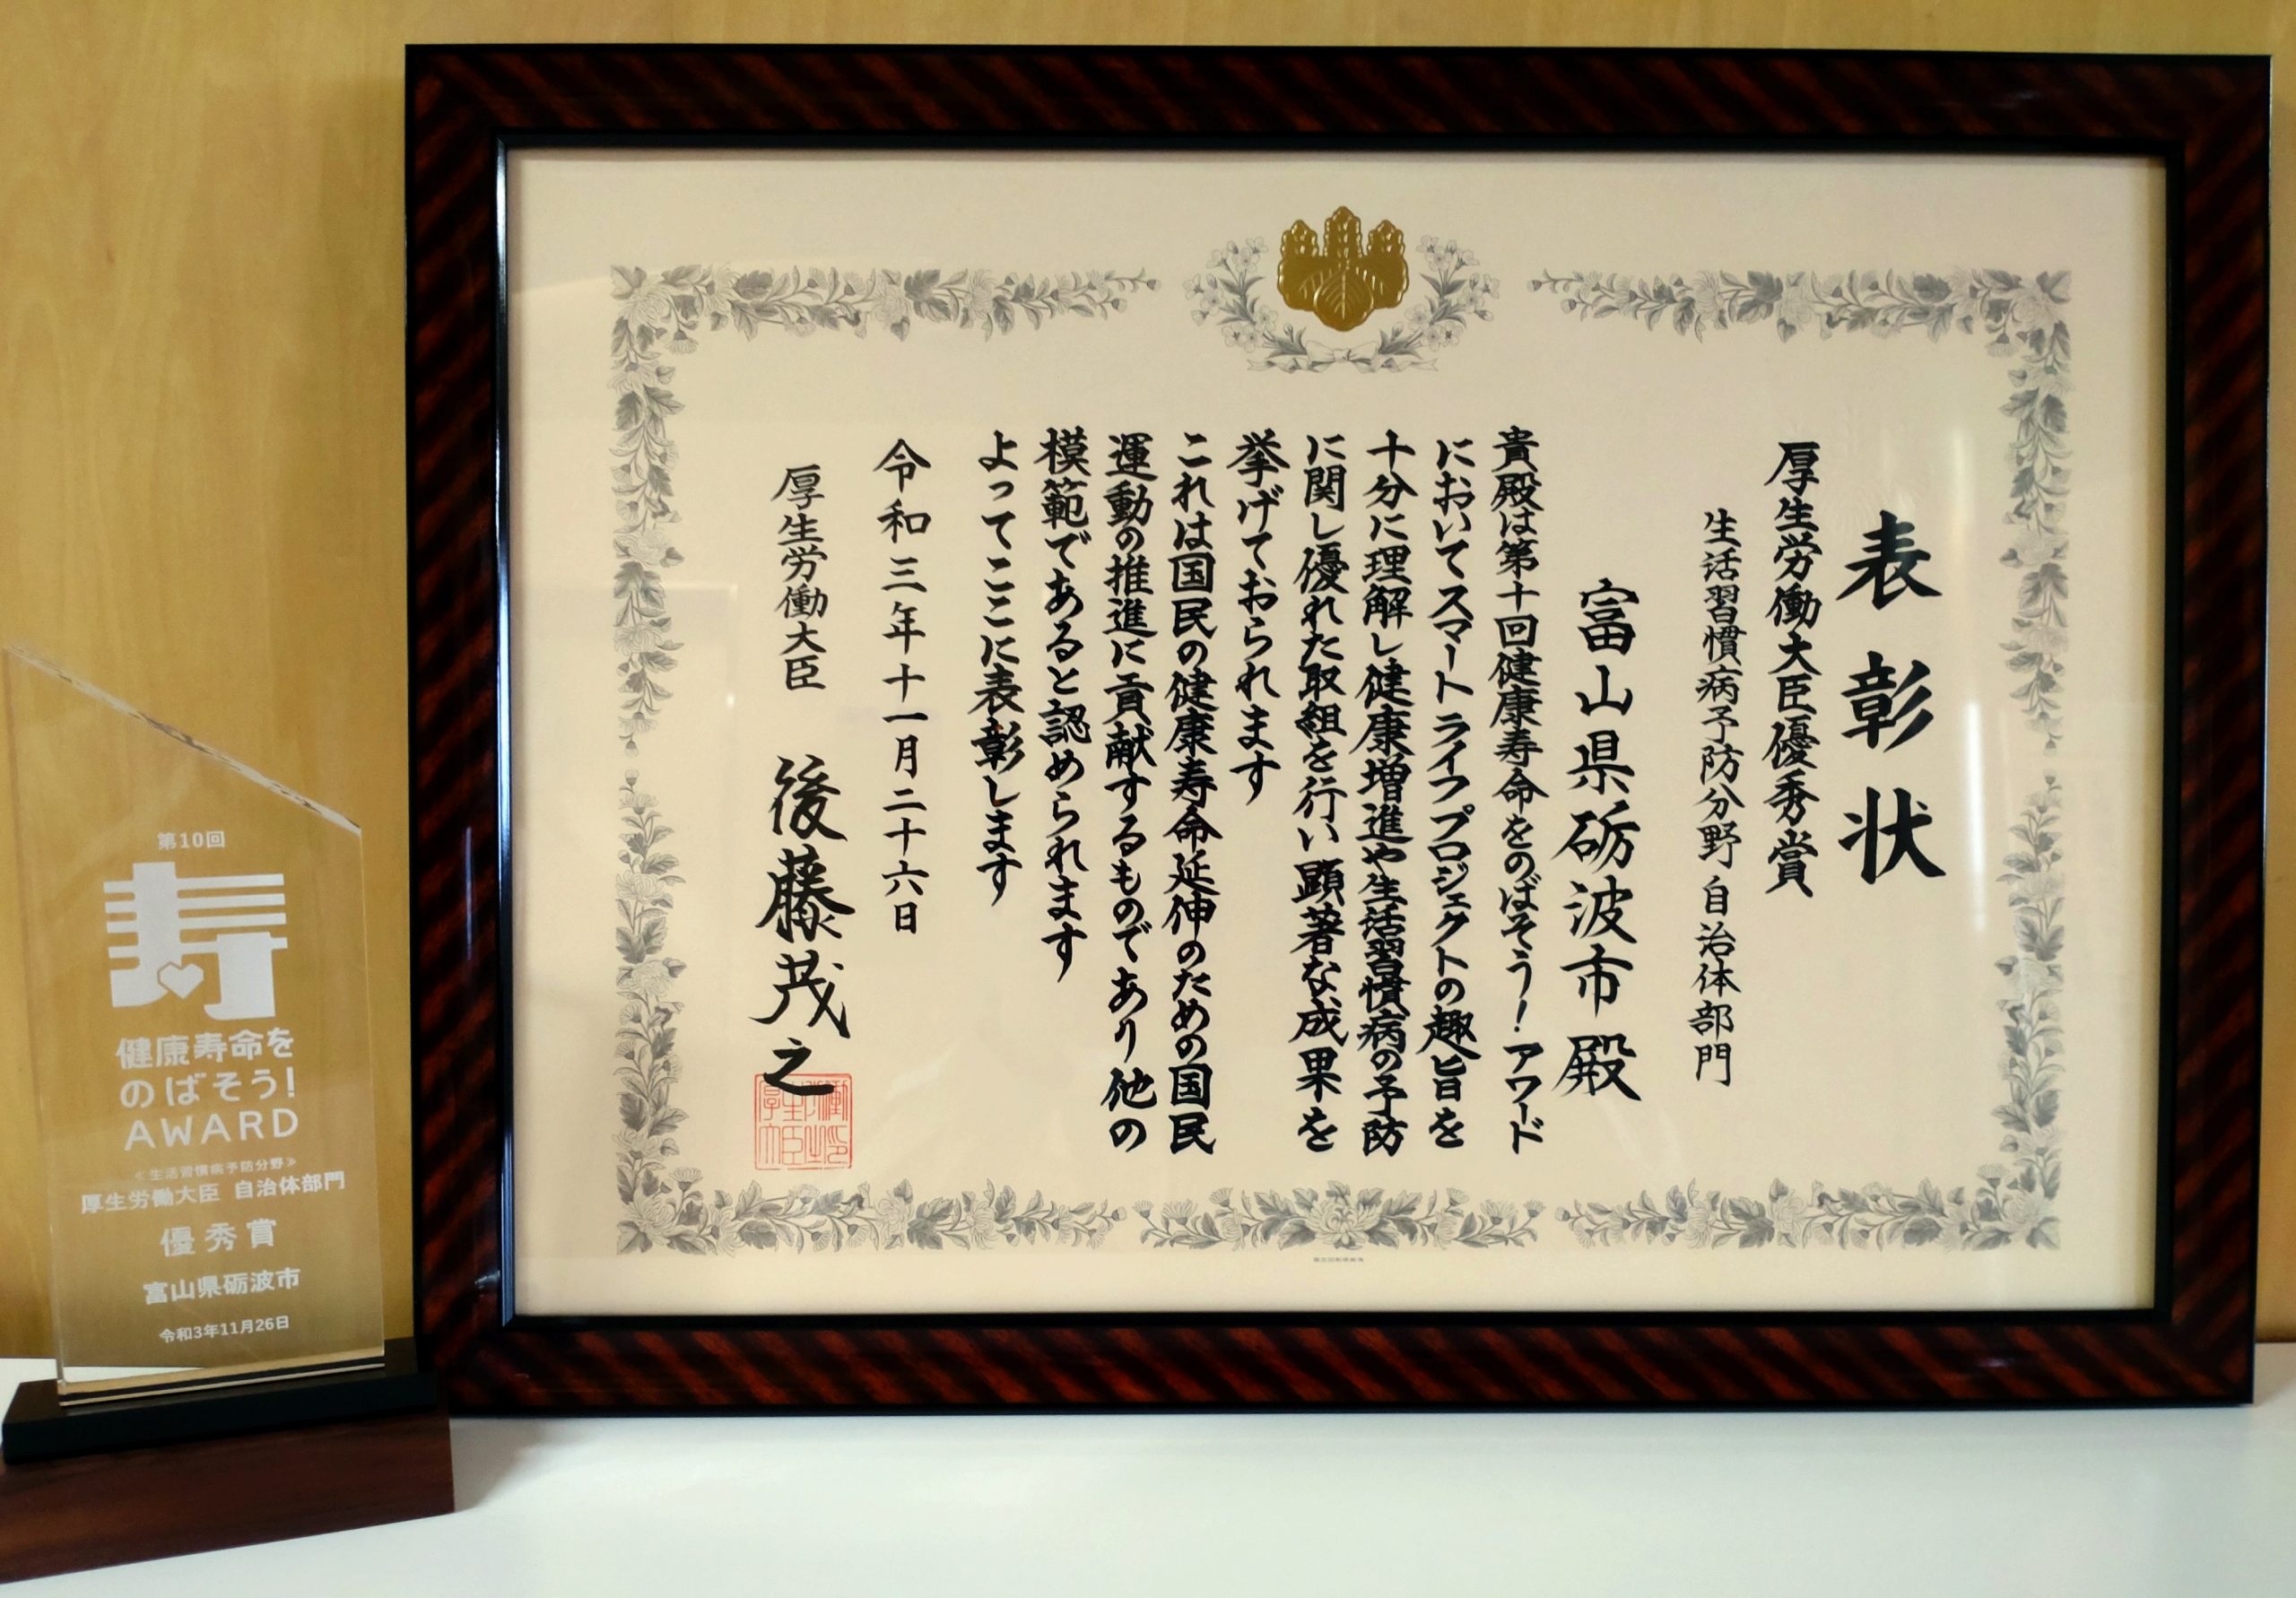 表彰状
厚生労働大臣優秀賞
生活習慣病予防分野 自治体部門
富山県砺波市殿
貴殿は第十回健康寿命をのばそう!アワード
においてスマートライフプロジェクトの趣旨を
十分に理解し健康増進や生活習慣病の予防
に関し優れた取組を行い顕著な成果を
挙げておられます
これは国民の健康寿命延伸のための国民
運動の推進に貢献するものであり他の
模範であると認められます
よってここに表彰します
令和三年十一月二十六日
厚生労働大臣 後藤茂之
第10回
寿
健康寿命を
のばそう!
AWARD
≪生活習慣病予防分野≫
厚生労働大臣 自治体部門
優秀賞
富山県砺波市
令和3年11月26日